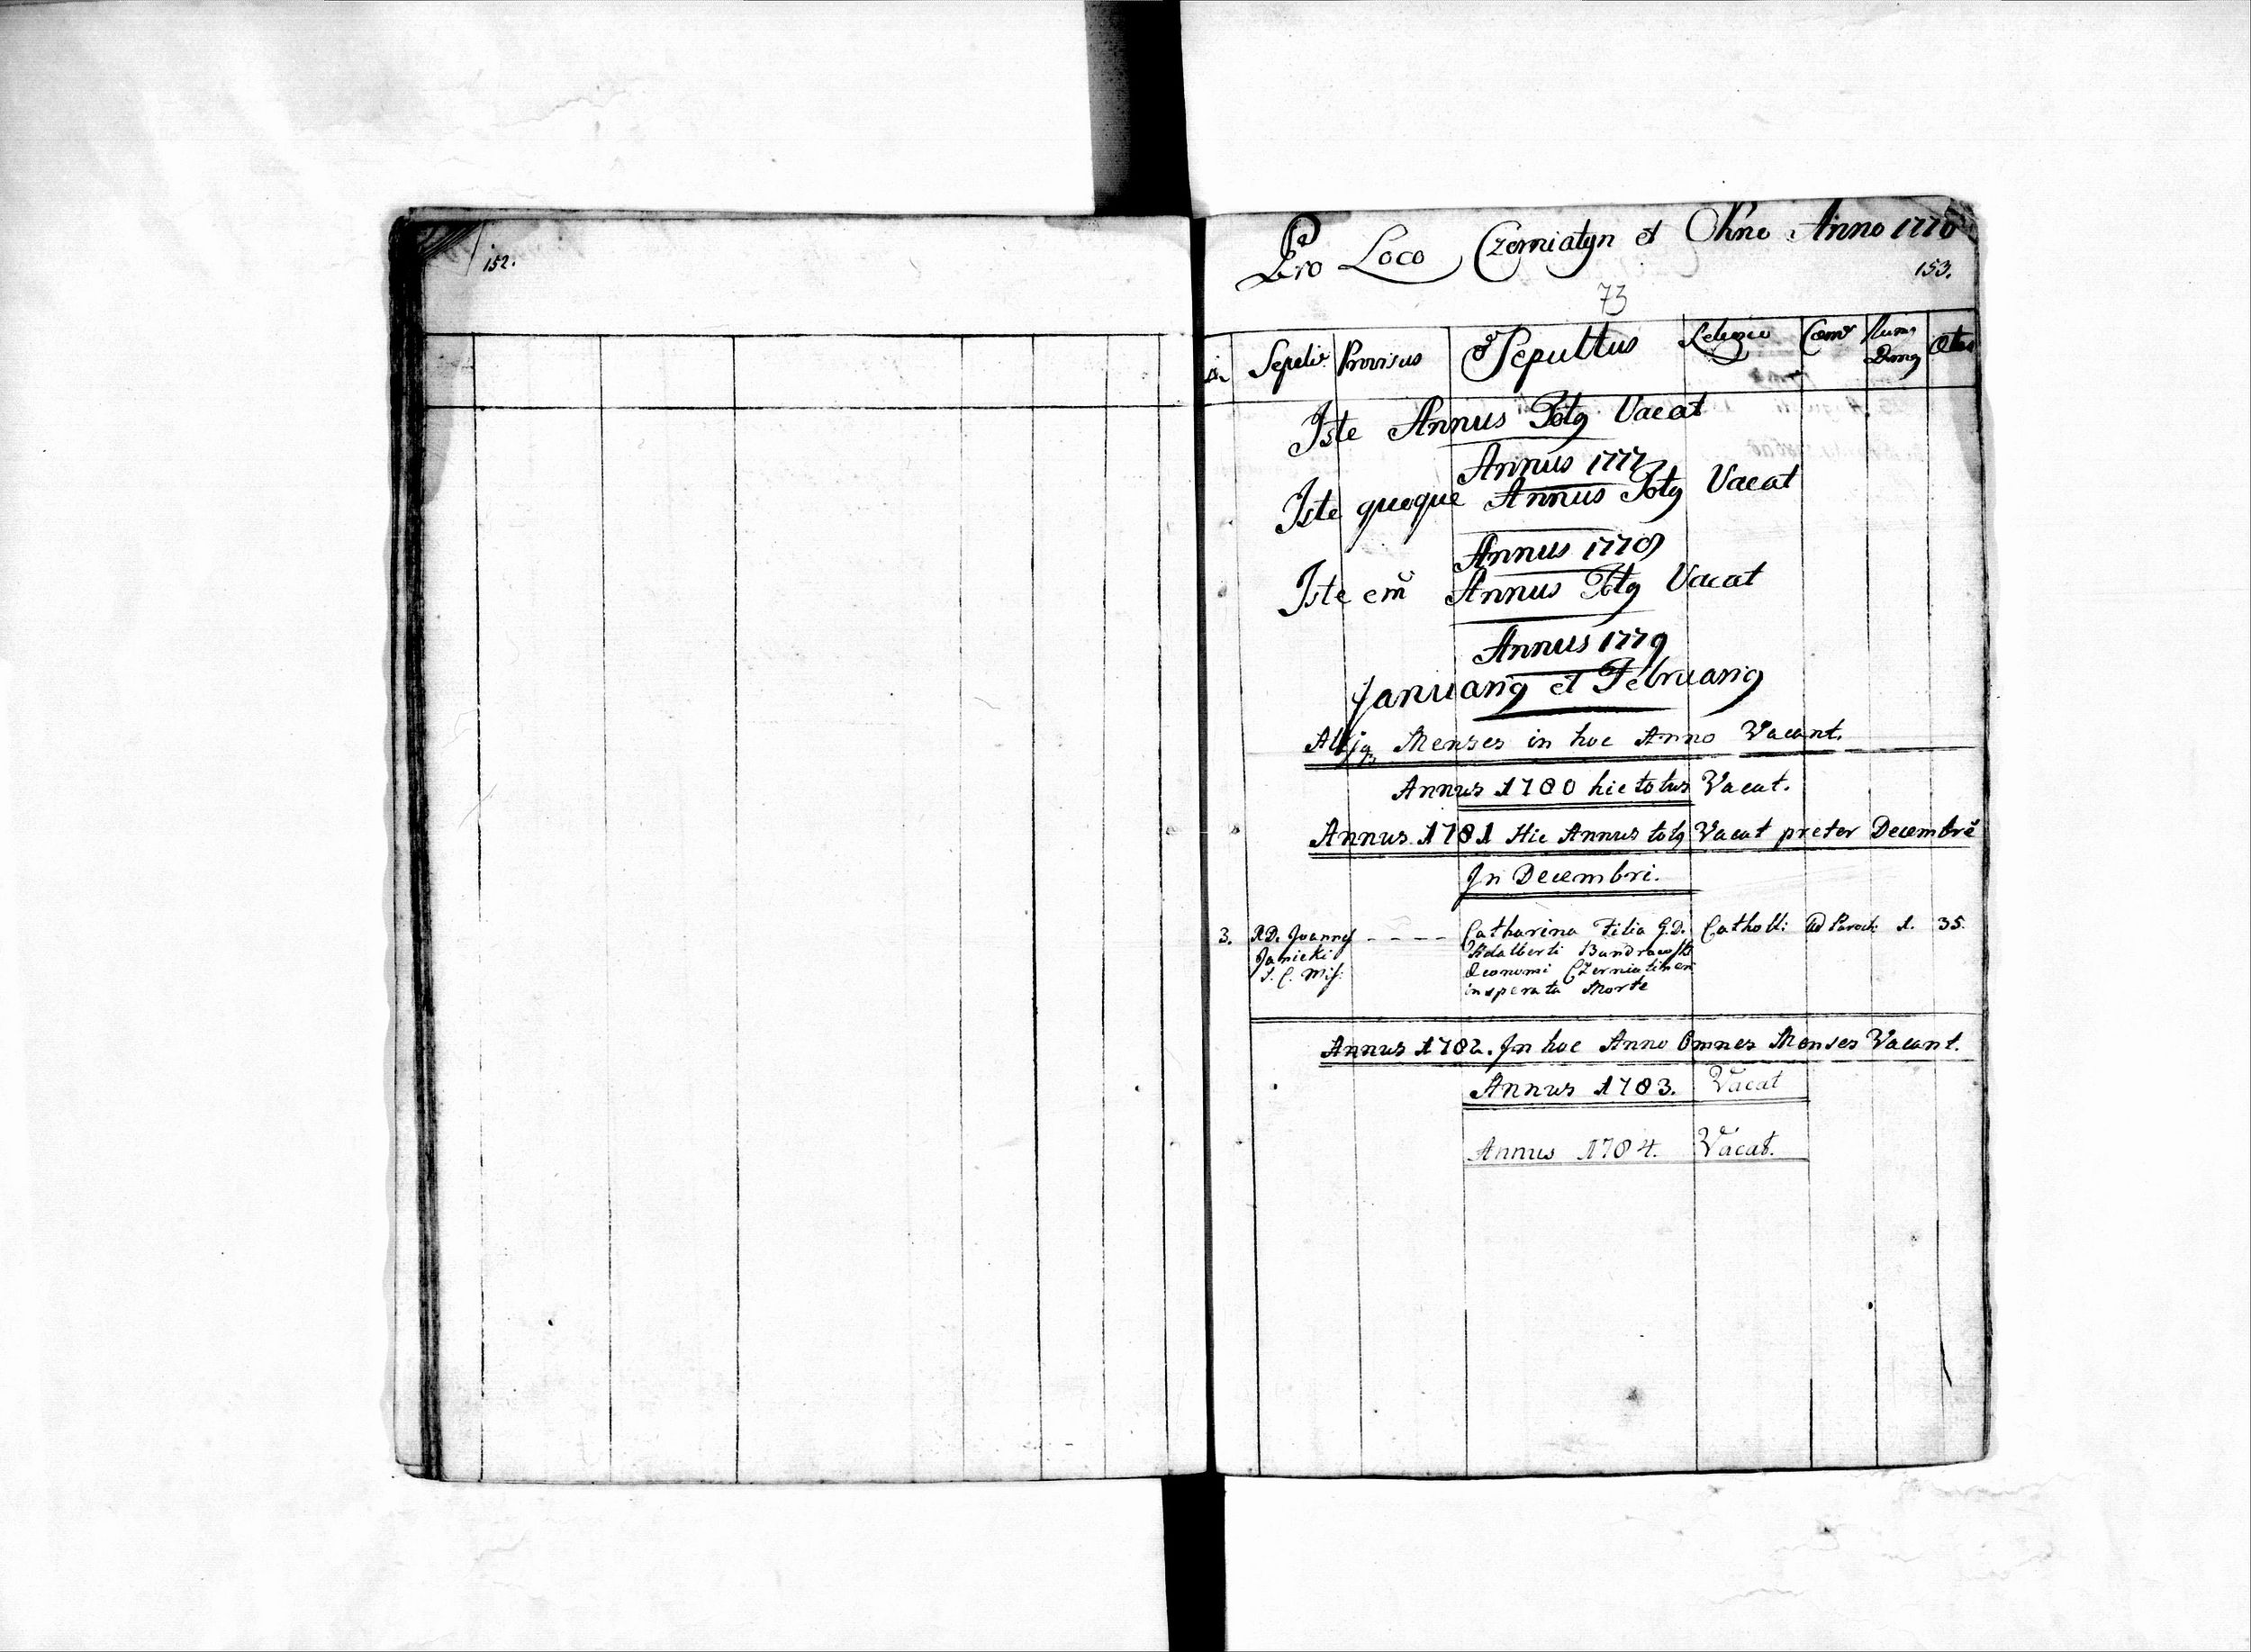 152.
Pro Loco Czerniatyn et Okno Anno 1776
153.
73
Sepeliv. Provisus Sepultus Religio Com Num Dmg Ætas
Iste Annus Totg Vacat
Annus 1777
Iste queque Annus Totg Vacat
Annus 1778
Iste em̄ Annus Totg Vacat
Annus 1779
Januarig et Februarig
Alijq Menses in hoc Anno Vacant.
Annus 1780 hic totus Vacat.
Annus 1781 Hic Annus totg Vacat preter Decembrē
In Decembri.
3. RD. Joannes - - - - Catharina Filia G.D. Cathol: Ad Paroch: 1. 35.
Janicki Adalberti
S. C. Miss. Oeconomi Czerniatinen
insperata Morte
Annus 1782. In hoc Anno Omnes Menses Vacant.
Annus 1783. Vacat
Annus 1784. Vacat.